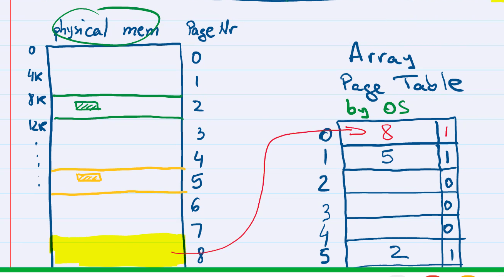 physical mem
Page Nr
0
4K
8K
12K
0
1
2
3
4
5
6
7
8
Array
Page Table
by OS
0 8 1
1 5 1
2 0
3 0
4 0
5 2 1